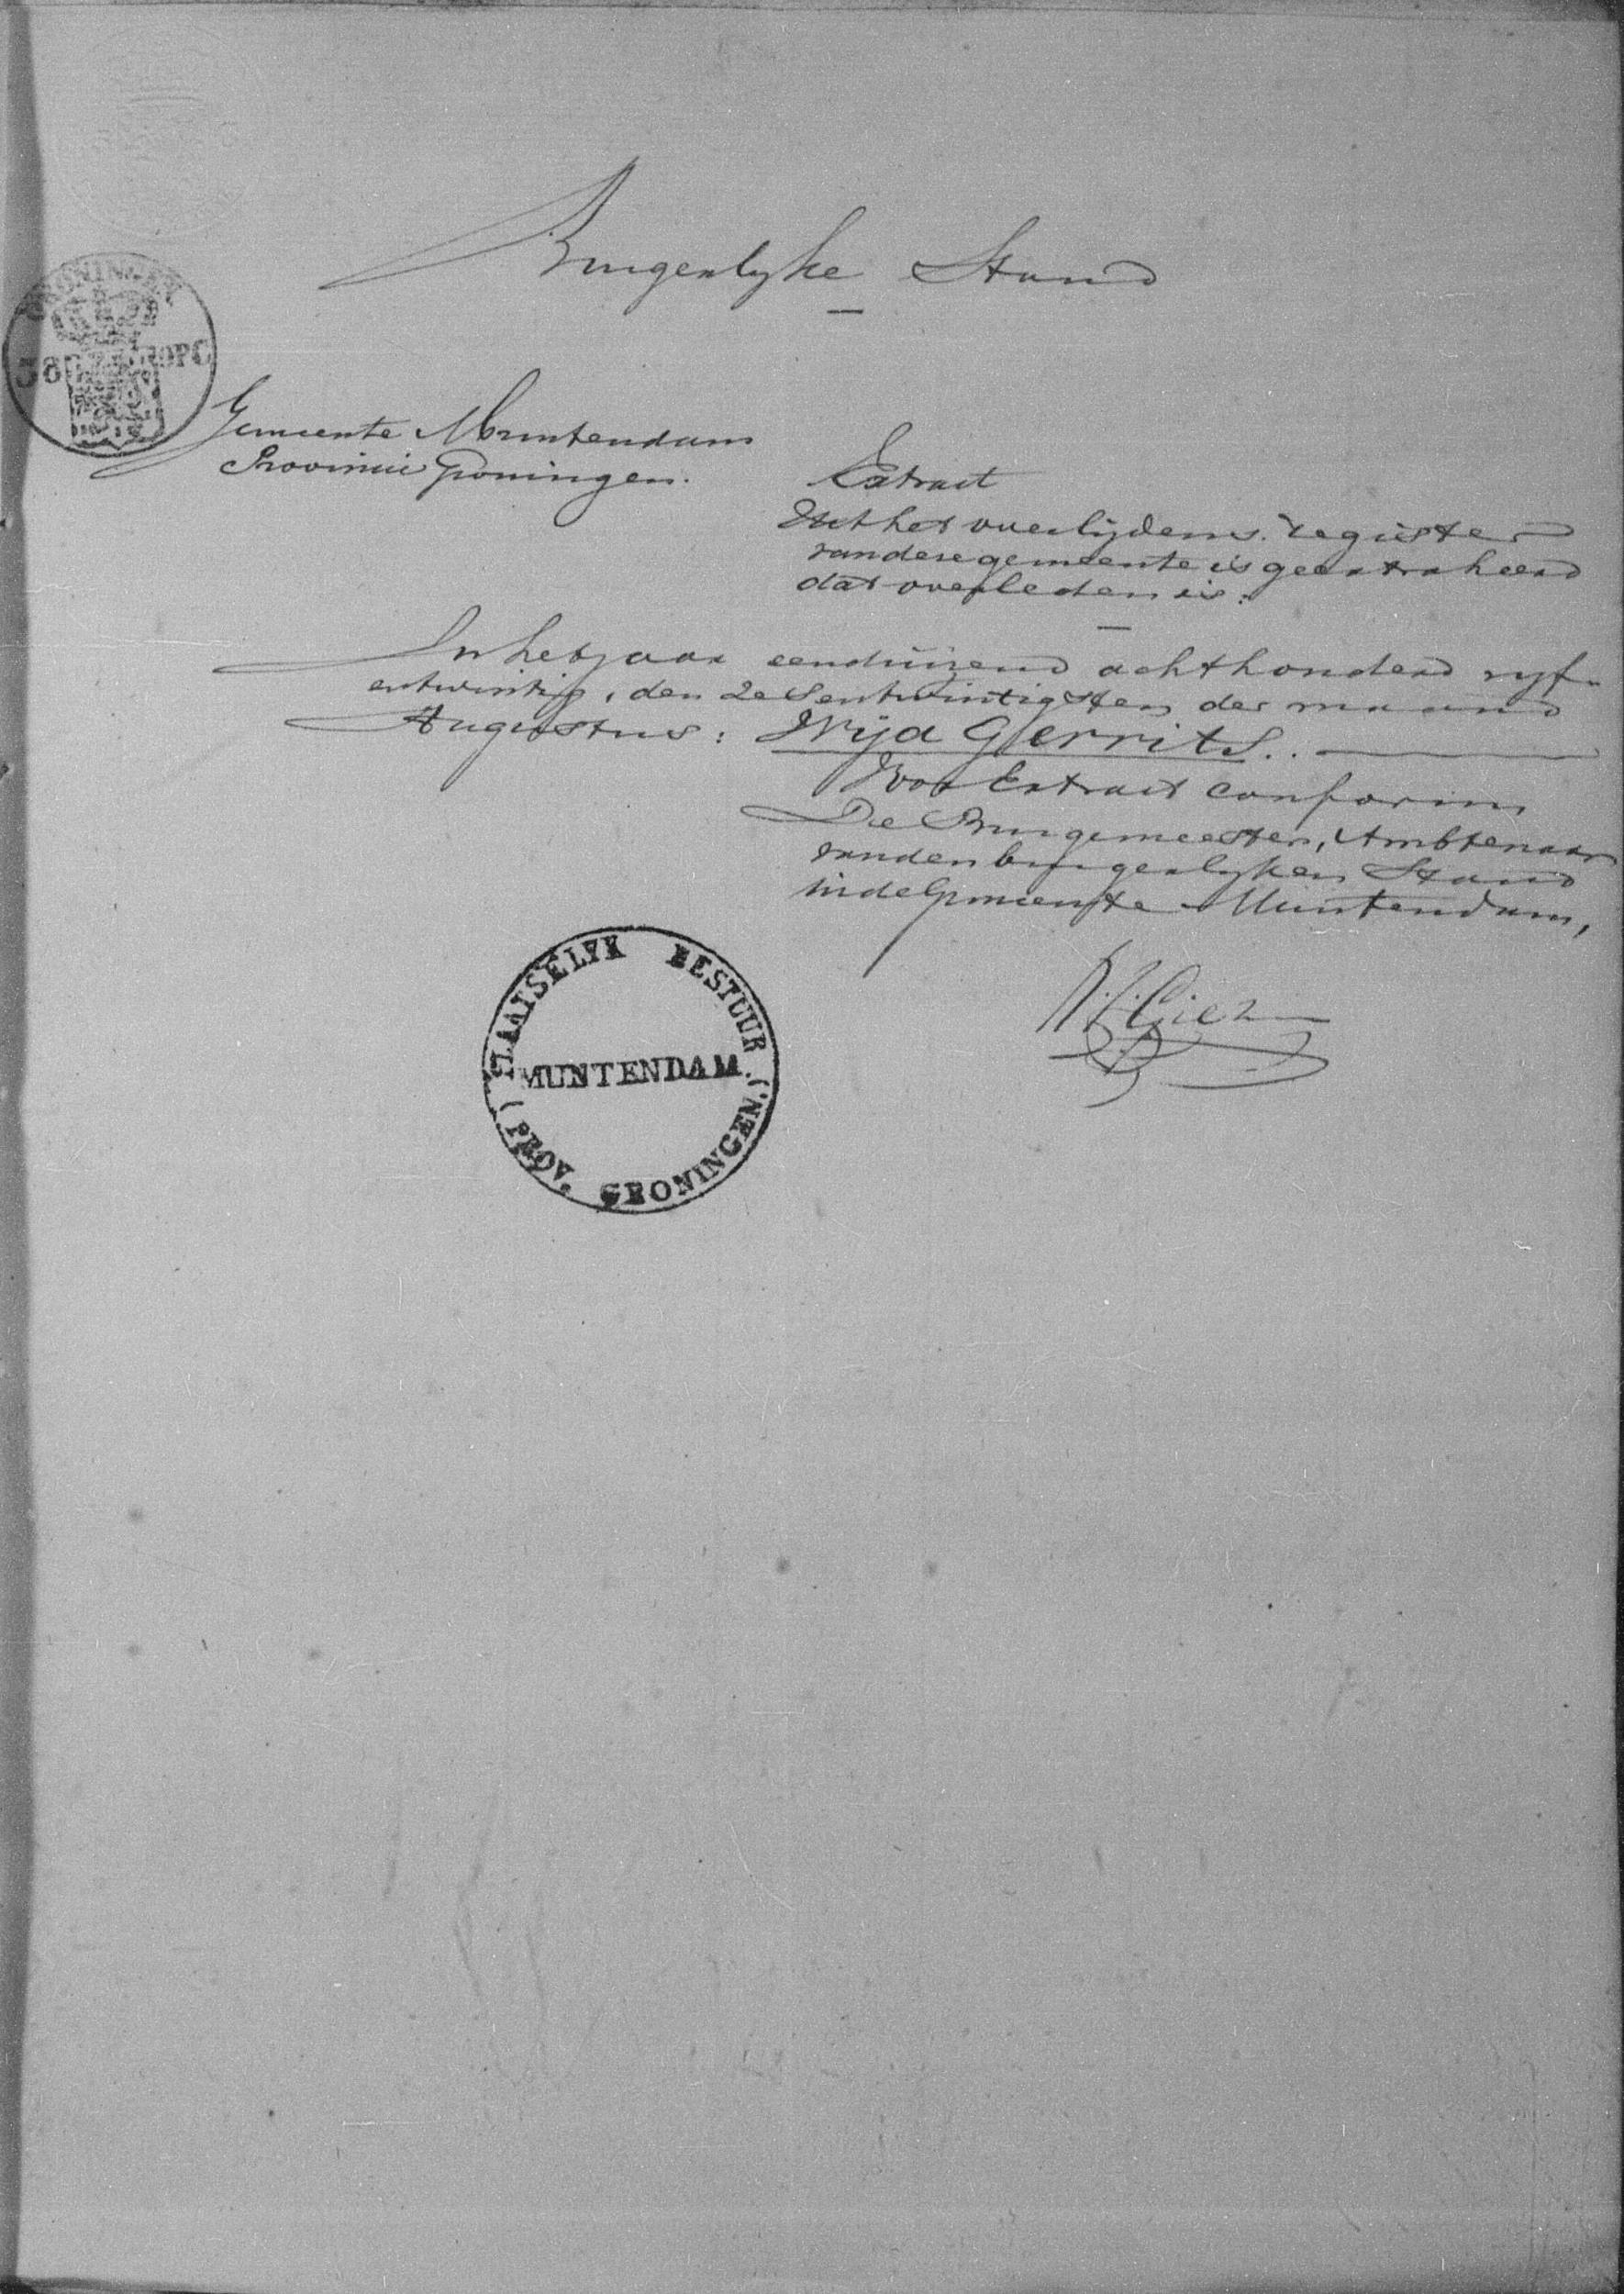 Burgerlyke Stand
GRONINGEN
38
Gemeente Muntendam
Provincie Groningen.
Extract
Uit het overlijdens register
van deze gemeente is geextraheerd
dat overleden is:
In het jaar eenduizend achthonderd vyf-
entwintig, den zesentwintigsten der maand
Augustus: Wija Gerrits.
Voor Extract conform,
De Burgemeester, Ambtenaar
van den burgerlyken Stand
in de Gemeente Muntendam,
PLAATSELYK BESTUUR
MUNTENDAM.
(PROV. GRONINGEN.)